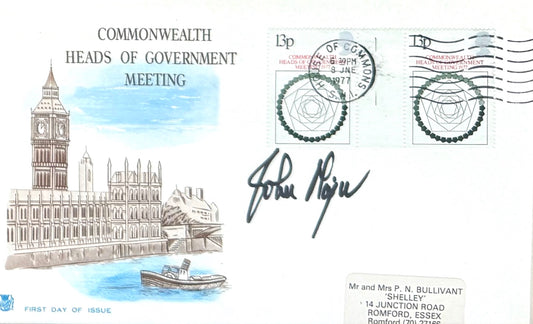 COMMONWEALTH
HEADS OF GOVERNMENT
MEETING
13p
COMMONWEALTH
HEADS OF GOVERNMENT
MEETING 1977
13p
COMMONWEALTH
HEADS OF GOVERNMENT
MEETING 1977
HOUSE OF COMMONS
S.W.1
6-19PM
8 JNE
1977
John Major
FIRST DAY OF ISSUE
Mr and Mrs P. N. BULLIVANT
'SHELLEY'
14 JUNCTION ROAD
ROMFORD, ESSEX
Romford (70) 27166